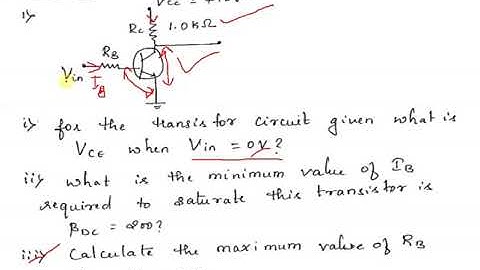 1)
Rc 1.0KΩ
RB
Vin
IB
i) for the transistor circuit given what is
VCE when Vin = 0V?
ii) what is the minimum value of IB
required to saturate this transistor is
βDC = 200?
iii) Calculate the maximum value of RB